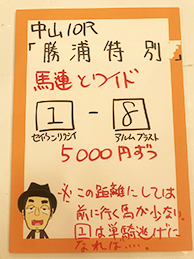 中山10R
「勝浦特別」
馬連とワイド
1 - 8
セイウンリライズ アルムブラスト
5000円ずつ
※この距離にしては
前に行く馬が少ない。
1は単騎逃げに
なれば……。